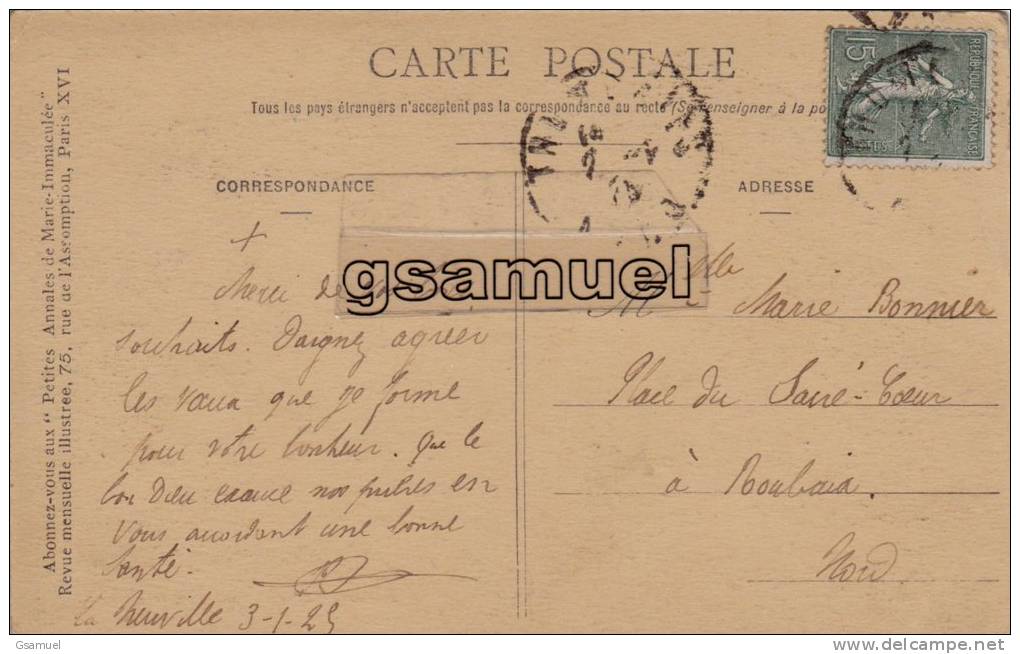 CARTE POSTALE
Tous les pays étrangers n'acceptent pas la correspondance au recto (Se renseigner à la po
15
REPUBLIQUE FRANÇAISE
POSTES
Abonnez-vous aux "Petites Annales de Marie-Immaculée"
Revue mensuelle illustrée, 75, rue de l'Assomption, Paris XVI
CORRESPONDANCE
+
Merci de
souhaits. Daignez agréer
les vœux que je forme
pour votre bonheur. Que le
bon Dieu exauce nos prières en
vous accordant une bonne
santé.
La Neuville 3-1-25
ADRESSE
Mlle Marie Bonnier
Place du Sacré-Cœur
à Roubaix.
Nord
gsamuel
Gsamuel
delcampe.net